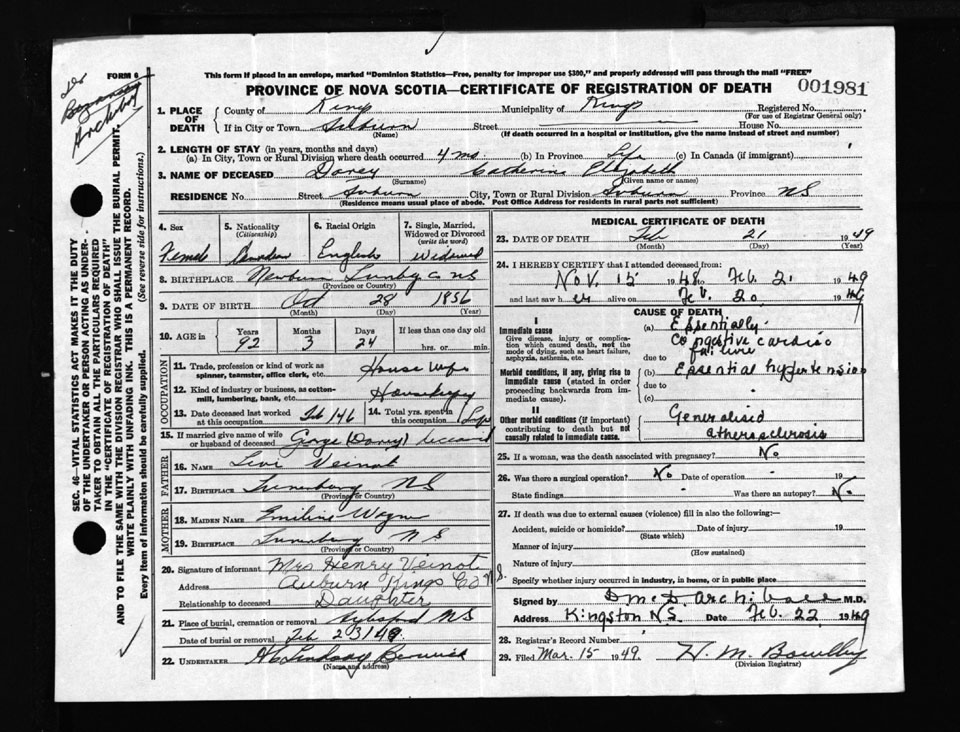 FORM 6
This form if placed in an envelope, marked "Dominion Statistics—Free, penalty for improper use $300," and properly addressed will pass through the mail "FREE"
PROVINCE OF NOVA SCOTIA—CERTIFICATE OF REGISTRATION OF DEATH
001981
Archboy
SEC. 46—VITAL STATISTICS ACT MAKES IT THE DUTY
OF THE UNDERTAKER OR PERSON ACTING AS UNDER-
TAKER TO OBTAIN ALL THE PARTICULARS REQUIRED
IN THE "CERTIFICATE OF REGISTRATION OF DEATH"
AND TO FILE THE SAME WITH THE DIVISION REGISTRAR WHO SHALL ISSUE THE BURIAL PERMIT.
WRITE PLAINLY WITH UNFADING INK. THIS IS A PERMANENT RECORD.
Every item of information should be carefully supplied. (See reverse side for instructions.)
1. PLACE OF DEATH
County of Kings Municipality of Kings Registered No.
(For use of Registrar General only)
If in City or Town Auburn Street House No.
(Name) (If death occurred in a hospital or institution, give the name instead of street and number)
2. LENGTH OF STAY (in years, months and days)
(a) In City, Town or Rural Division where death occurred 4 ms (b) In Province Life (c) In Canada (if immigrant)
3. NAME OF DECEASED Dorey Catherine Elizabeth
(Surname) (Given name or names)
RESIDENCE No. Street Auburn City, Town or Rural Division Auburn Province NS
(Residence means usual place of abode. Post Office Address for residents in rural parts not sufficient)
4. Sex
Female
5. Nationality
(Citizenship)
Canadian
6. Racial Origin
English
7. Single, Married, Widowed or Divorced
(write the word)
Widowed
8. BIRTHPLACE Newburn Lunbg Co NS
(Province or Country)
9. DATE OF BIRTH Oct 28 1856
(Month) (Day) (Year)
10. AGE in
Years Months Days If less than one day
92 3 24 hrs. or min.
OCCUPATION
11. Trade, profession or kind of work as
spinner, teamster, office clerk, etc. House Wife
12. Kind of industry or business, as cotton-
mill, lumbering, bank, etc. Housekeeping
13. Date deceased last worked
at this occupation Feb /46
14. Total yrs. spent in
this occupation Life
15. If married give name of wife
or husband of deceased George (Dorey) deceased
FATHER
16. NAME Levi Veinot
17. BIRTHPLACE Lunenburg NS
(Province or Country)
MOTHER
18. MAIDEN NAME Emiline Wagner
19. BIRTHPLACE Lunenburg NS
(Province or Country)
20. Signature of informant Mrs Henry Veinot
Address Auburn Kings Co NS.
Relationship to deceased Daughter
21. Place of burial, cremation or removal Aylesford NS
Date of burial or removal Feb 23/49
22. UNDERTAKER Lindsay Berwick
(Name and address)
MEDICAL CERTIFICATE OF DEATH
23. DATE OF DEATH Feb 21 1949
(Month) (Day) (Year)
24. I HEREBY CERTIFY that I attended deceased from:
Nov. 15 1948 Feb. 21 1949
and last saw h er alive on Feb. 20 1949
CAUSE OF DEATH
I
Immediate cause
Give disease, injury or complica-
tion which caused death, not the
mode of dying, such as heart failure,
asphyxia, asthenia, etc.
(a) Essentially
Congestive cardiac
failure
due to
Morbid conditions, if any, giving rise to
immediate cause (stated in order
proceeding backwards from im-
mediate cause).
(b) Essential hypertension
due to
(c)
II
Other morbid conditions (if important)
contributing to death but not
causally related to immediate cause.
Generalised
atherosclerosis
25. If a woman, was the death associated with pregnancy? No
26. Was there a surgical operation? No Date of operation 19
State findings Was there an autopsy? No
27. If death was due to external causes (violence) fill in also the following:—
Accident, suicide or homicide? Date of injury 19
(State which)
Manner of injury
(How sustained)
Nature of injury
Specify whether injury occurred in industry, in home, or in public place
Signed by D McD. Archibald M.D.
Address Kingston N.S. Date Feb. 22 1949
28. Registrar's Record Number
29. Filed Mar. 15 1949. H. M. Bowlby
(Division Registrar)